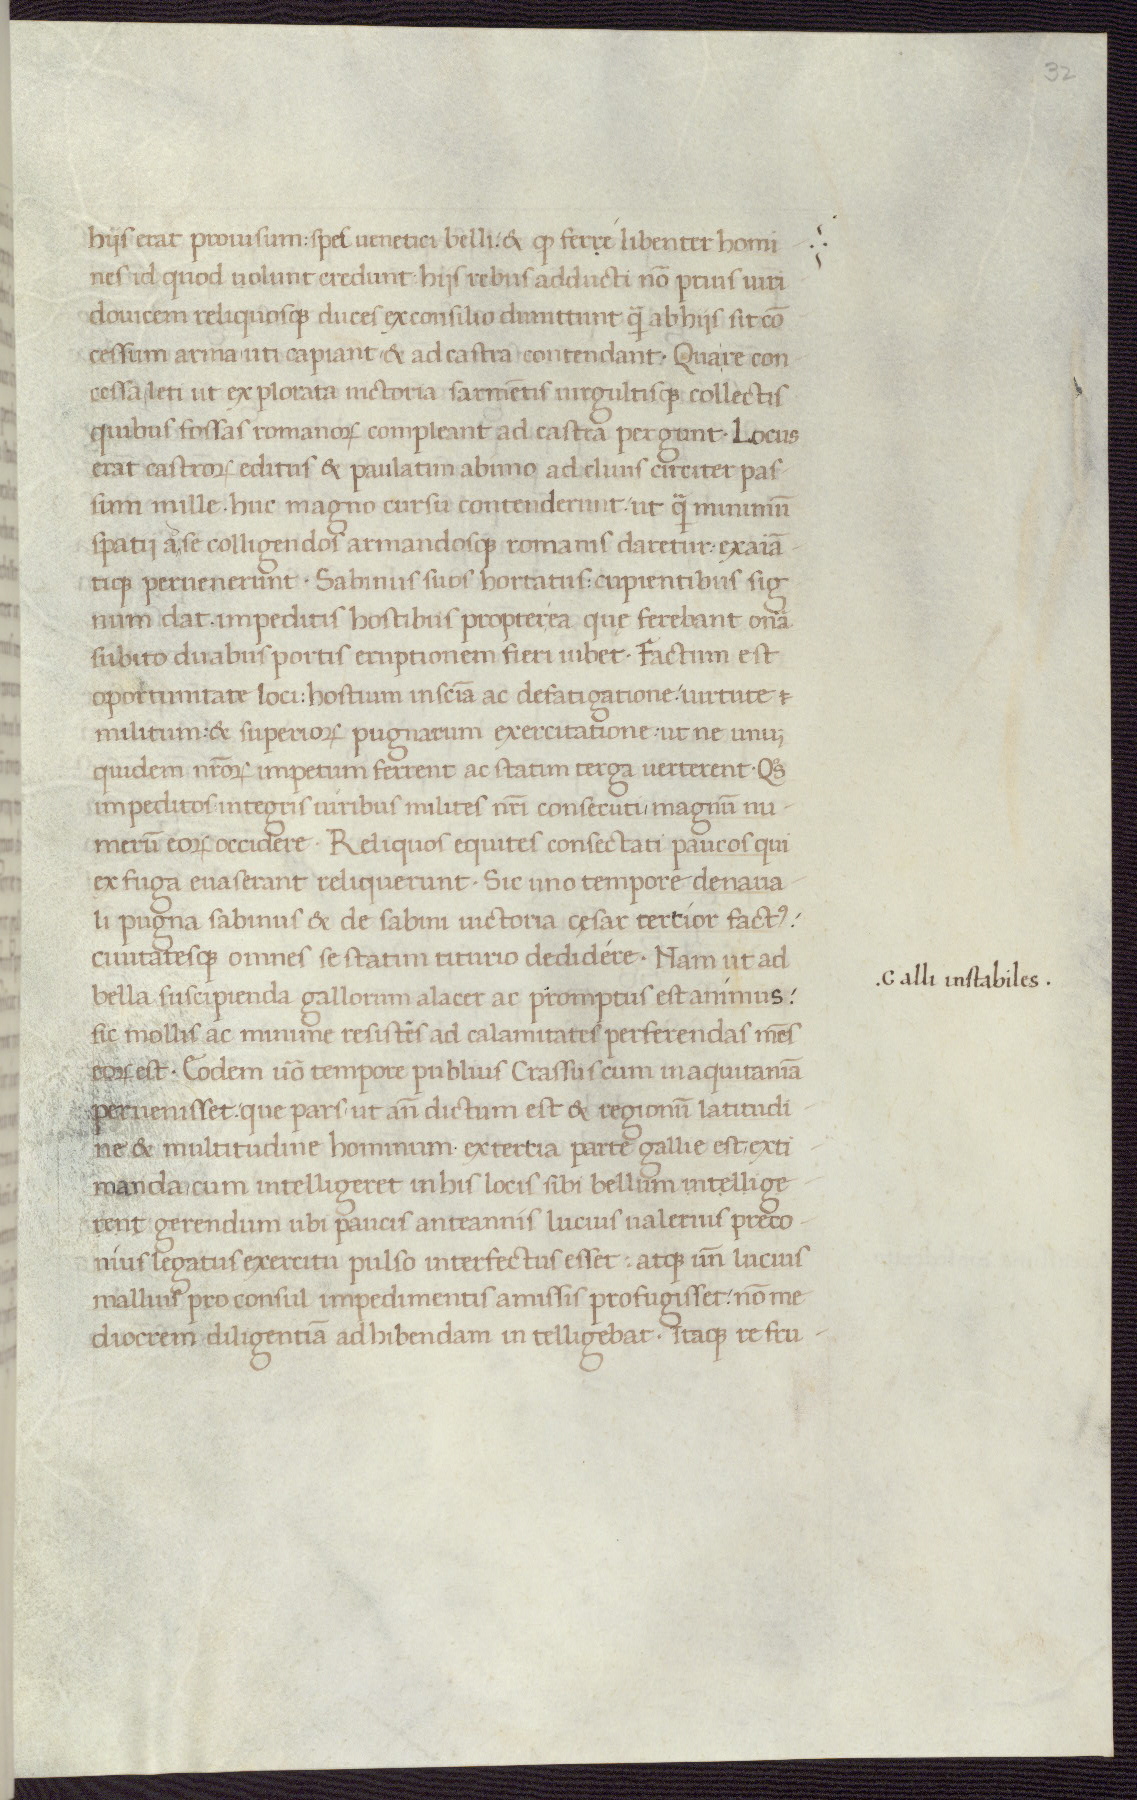 32
hijs erat prouisum: spes uenetici belli: & qđ ferre libenter homi
nes id quod uolunt credunt. hijs rebus adducti nō prius uiri
douicem reliquosqꝫ duces ex consilio dimittunt q̄ abhijs sit cō
cessum arma uti capiant & ad castra contendant. Quare con
cessa leti ut explorata uictoria sarmētis uirgultisqꝫ collectis
quibus fossas romanoꝝ compleant ad castra pergunt. Locus
erat castroꝝ editus & paulatim abimo ad cliuis circiter pas
sum mille. huc magno cursu contenderunt: ut q̄ minimū
spatij ad se colligendos armandosqꝫ romanis daretur: exaīa
tiqꝫ peruenerunt. Sabinus suos hortatus: cupientibus sig
num dat. impeditis hostibus propterea que ferebant onā
subito duabus portis eruptionem fieri iubet. Factum est
oportunitate loci: hostium insciā ac defatigatione: uirtute
militum: & superioꝝ pugnarum exercitatione: ut ne unuꝫ
quidem nr̄oꝝ impetum ferrent ac statim terga uerterent. Qs
impeditos integris uiribus milites nr̄i consecuti, magnū nu
merū eoꝝ occidere. Reliquos equites consectati paucos qui
ex fuga euaserant reliquerunt. Sic uno tempore de naua
li pugna sabinus & de sabini uictoria cęsar tertior factꝰ:
ciuitatesqꝫ omnes se statim titurio dedidére. Nam ut ad
bella suscipienda gallorum alacer ac promptus est animus:
sic mollis ac minime resistēs ad calamitates perferendas mēs
eoꝝ est. Eodem uō tempore publius Crassus cum inaquitaniā
peruenisset: que pars ut an̄ dictum est & regionū latitudi
ne & multitudine hominum. ex tertia parte gallie est, exti
manda, cum intelligeret in his locis sibi bellum intellige
rent gerendum ubi paucis ante annis lucius ualerius preco
nius legatus exercitu pulso interfectus esset: atqꝫ un̄ lucius
mallius pro consul impedimentis amissis profugisset: nō me
diocrem diligentiā adhibendam in telligebat. Itaqꝫ re fru
.Galli instabiles.